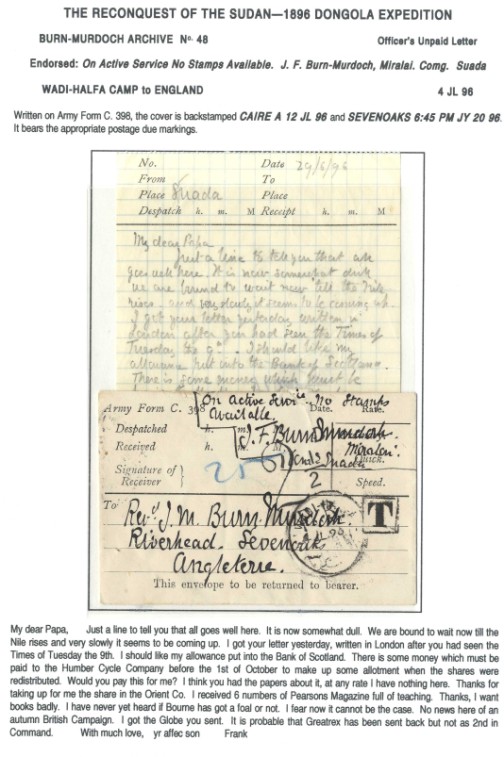 THE RECONQUEST OF THE SUDAN—1896 DONGOLA EXPEDITION
BURN-MURDOCH ARCHIVE No. 48
Officer's Unpaid Letter
Endorsed: On Active Service No Stamps Available. J. F. Burn-Murdoch, Miralai. Comg. Suada
WADI-HALFA CAMP to ENGLAND
4 JL 96
Written on Army Form C. 398, the cover is backstamped CAIRE A 12 JL 96 and SEVENOAKS 6:45 PM JY 20 96.
It bears the appropriate postage due markings.
No. Date 29/6/96
From To
Place Suada Place
Despatch h. m. M Receipt h. m. M
My dear Papa
Just a line to tell you that all
goes well here. It is now somewhat dull
We are bound to wait now till the Nile
rises and very slowly it seems to be coming up.
I got your letter yesterday written in
London after you had seen the Times of
Tuesday the 9th. I should like my
allowance put into the Bank of Scotland.
There is some money which must be
On Active Service No Stamps
Available.
Army Form C. 398 Date. Rate.
Despatched h. m.
J. F. Burn Murdoch.
Miralai.
Received h. m. M
Quick.
Suada
25
Signature of Receiver } 2 Speed.
T
To Revd J. M. Burn Murdoch.
Riverhead. Sevenoaks
Angleterre.
This envelope to be returned to bearer.
My dear Papa, Just a line to tell you that all goes well here. It is now somewhat dull. We are bound to wait now till the
Nile rises and very slowly it seems to be coming up. I got your letter yesterday, written in London after you had seen the
Times of Tuesday the 9th. I should like my allowance put into the Bank of Scotland. There is some money which must be
paid to the Humber Cycle Company before the 1st of October to make up some allotment when the shares were
redistributed. Would you pay this for me? I think you had the papers about it, at any rate I have nothing here. Thanks for
taking up for me the share in the Orient Co. I received 6 numbers of Pearsons Magazine full of teaching. Thanks, I want
books badly. I have never yet heard if Bourne has got a foal or not. I fear now it cannot be the case. No news here of an
autumn British Campaign. I got the Globe you sent. It is probable that Greatrex has been sent back but not as 2nd in
Command. With much love, yr affec son Frank